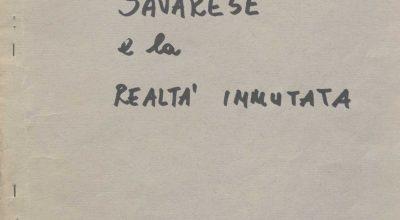 SAVARESE
e la
REALTA' IMMUTATA